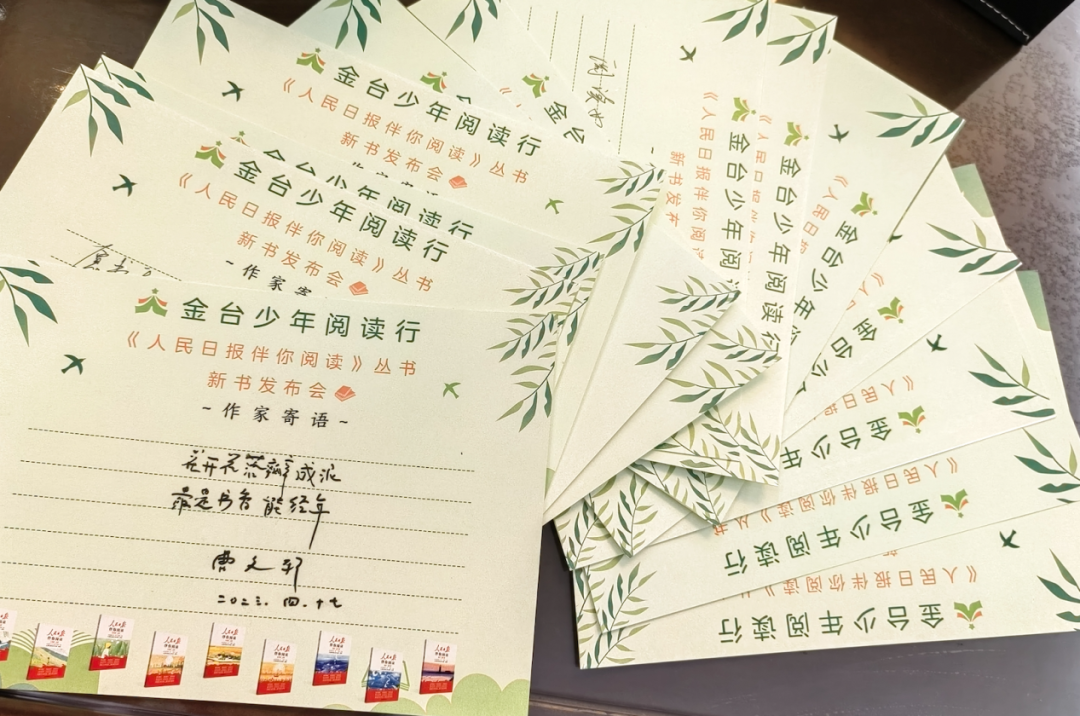 金台少年阅读行
《人民日报伴你阅读》丛书
新书发布会
~作家寄语~
花开花落瓣成泥
最是书香能经年
曹文轩
二〇二三.四.十七
金台少年阅读行
《人民日报伴你阅读》丛书
新书发布会
-作家寄
金台少年阅读行
金台少年阅读行
《人民日报伴你阅读》丛书
新书发布会
金
金台少年阅读
《人民日报伴你阅
新书发布
金台少年阅读
《人民日报伴你
金台少年阅读行
《人民日报
金台少年阅
《人民日
金台少年阅读行
《人民日报
金台少年阅读行
《人民日报伴你阅读》丛书
金台少年阅读行
《人民日报伴你阅读》